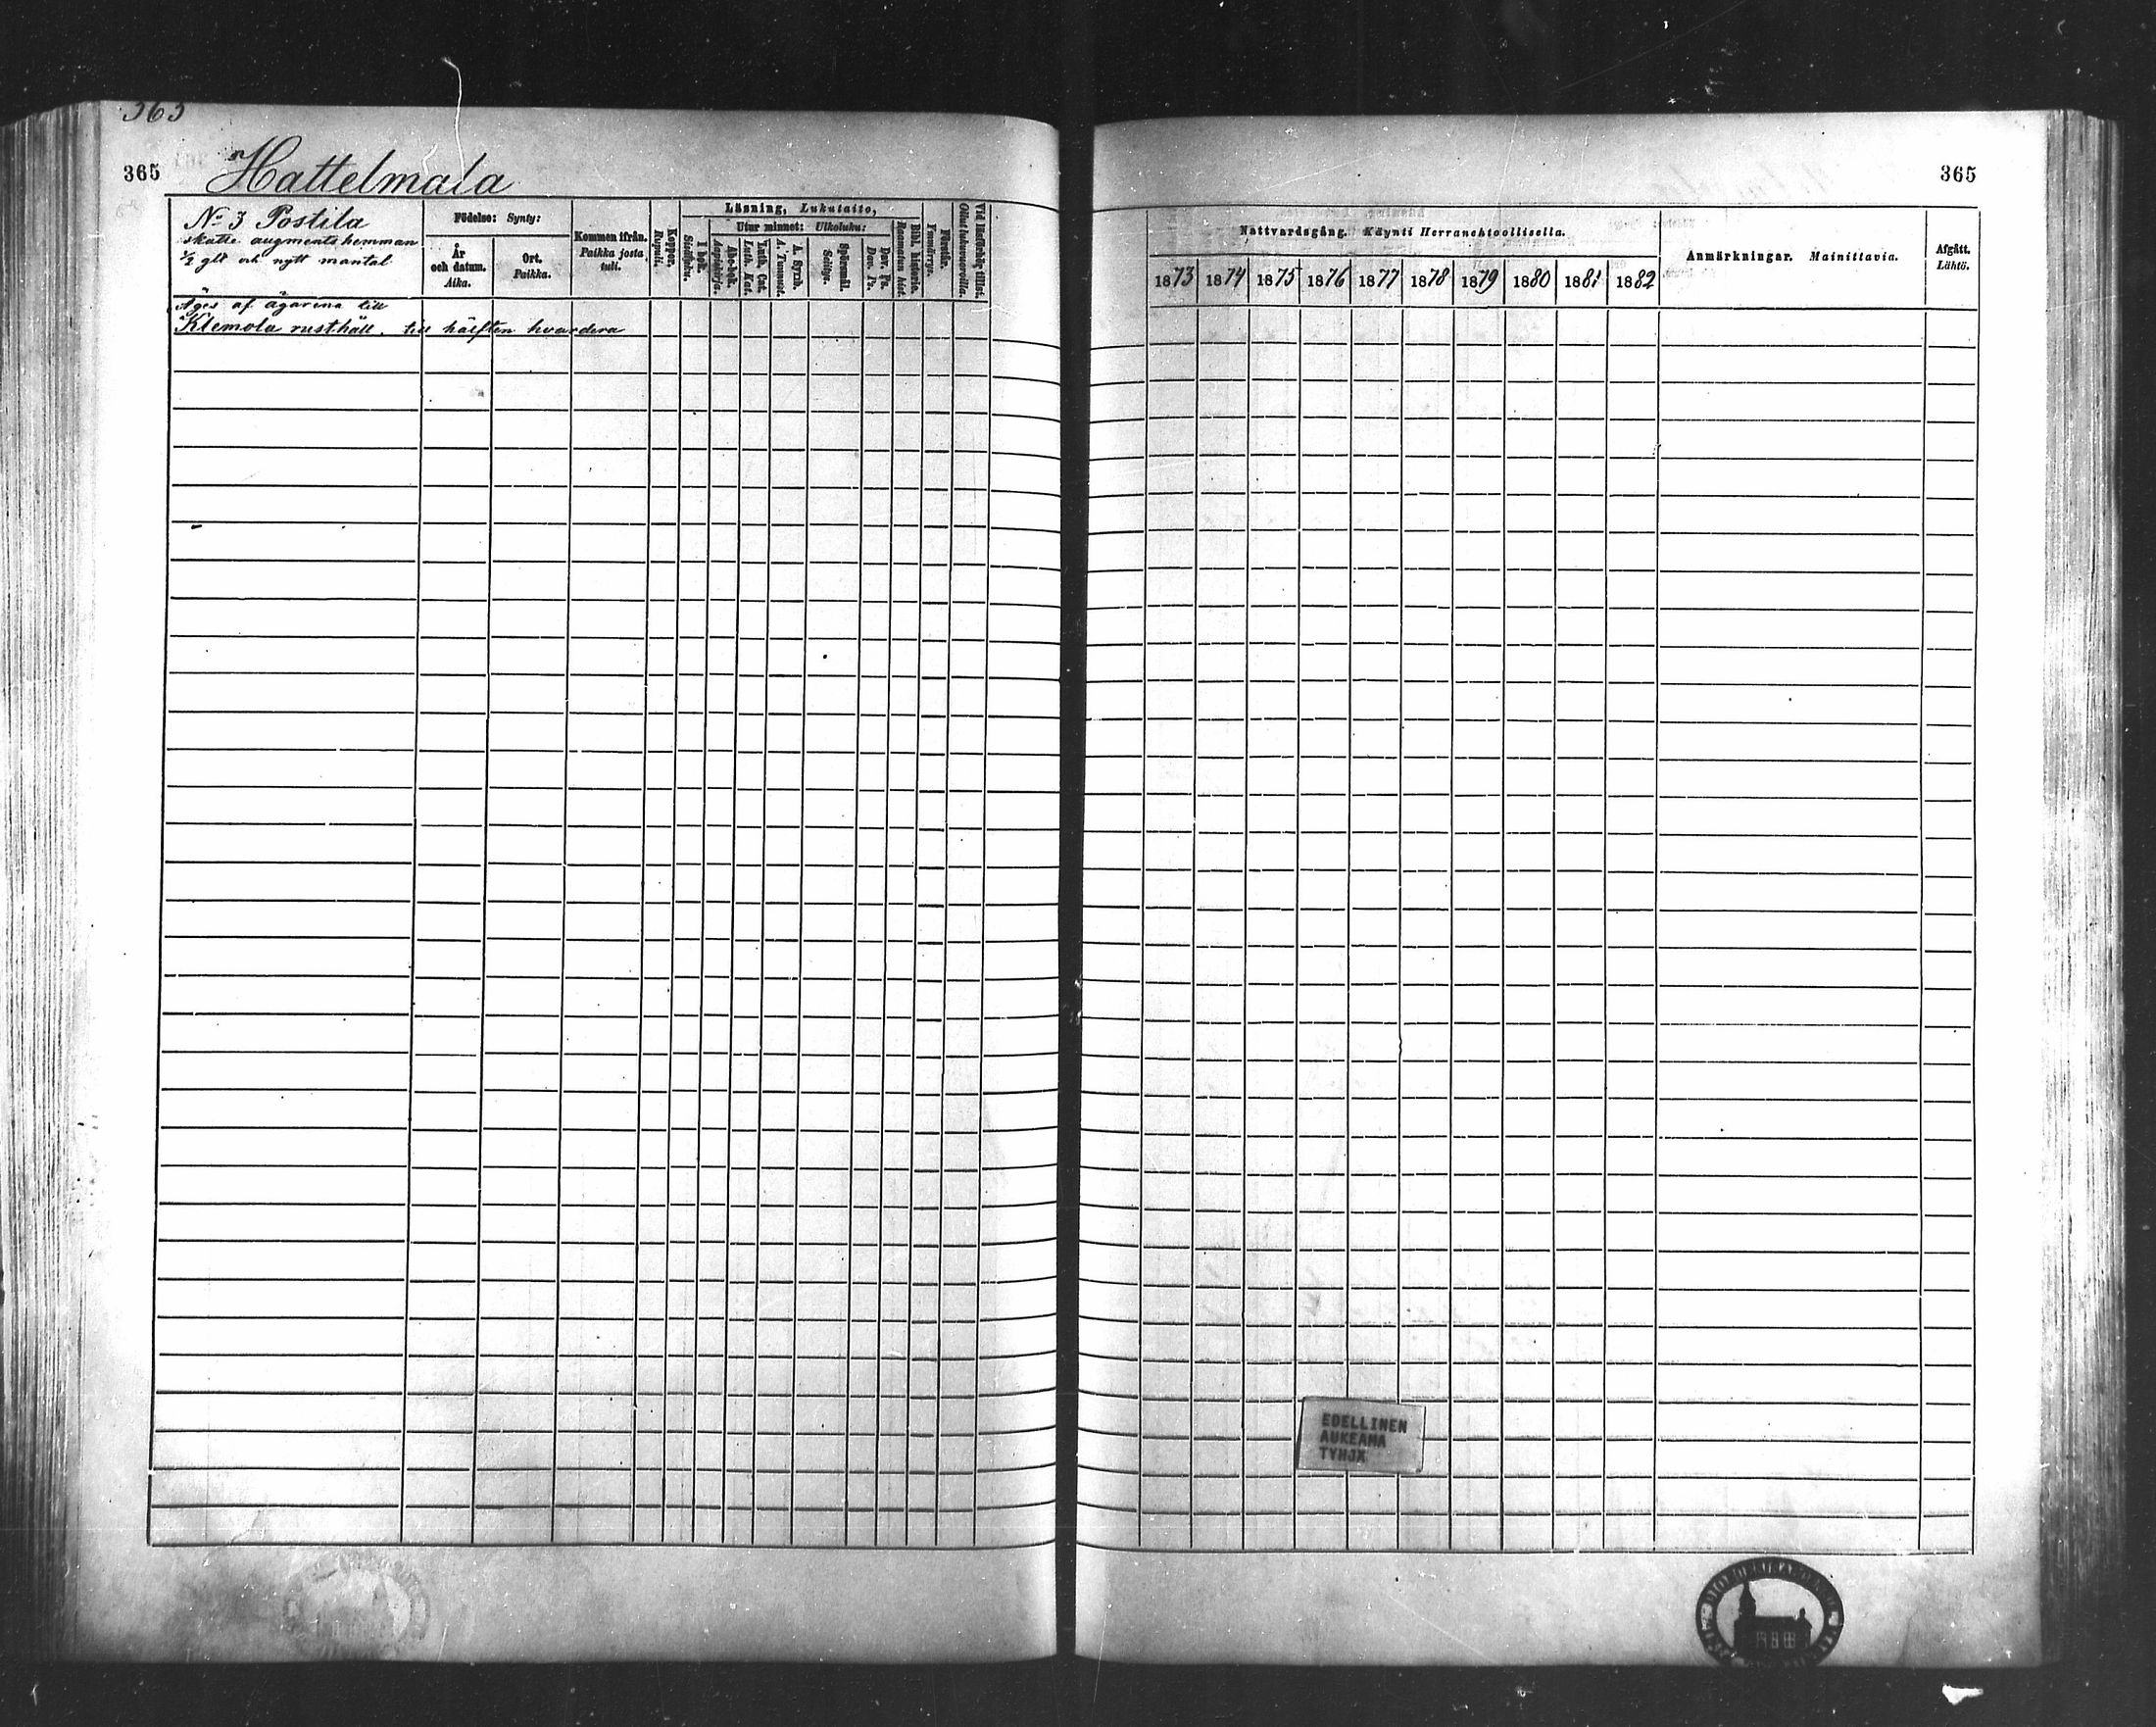 363
365
Hattelmala
365
No 3 Postila
skatte augments hemman
1/2 glt och nytt mantal
Födelse: Synty:
År och datum. Aika.
Ort. Paikka.
Kommen ifrån. Paikka josta tuli.
Koppor. Rupuli.
Läsning, Lukutaito,
I bok. Sisäluku.
Utur minnet: Ulkoluku:
Abc-bok. Aapiskirja.
Luth. Cat. Luth. Kat.
A. Symb. A. Tunnust.
Spörsmål. Selitys.
Dav. Ps. Dav. Ps.
Bibl. historia. Raamatun hist.
Förstår. Ymmärrys.
Vid läsförhör tillst. Ollut lukuvuoroilla.
Nattvardsgång. Käynti Herranehtoollisella.
1873 1874 1875 1876 1877 1878 1879 1880 1881 1882
Anmärkningar. Mainittavia.
Afgått. Lähtö.
Äges af ägarena till
Klemola rusthåll. till hälften hvardera
EDELLINEN
AUKEAMA
TYHJÄ